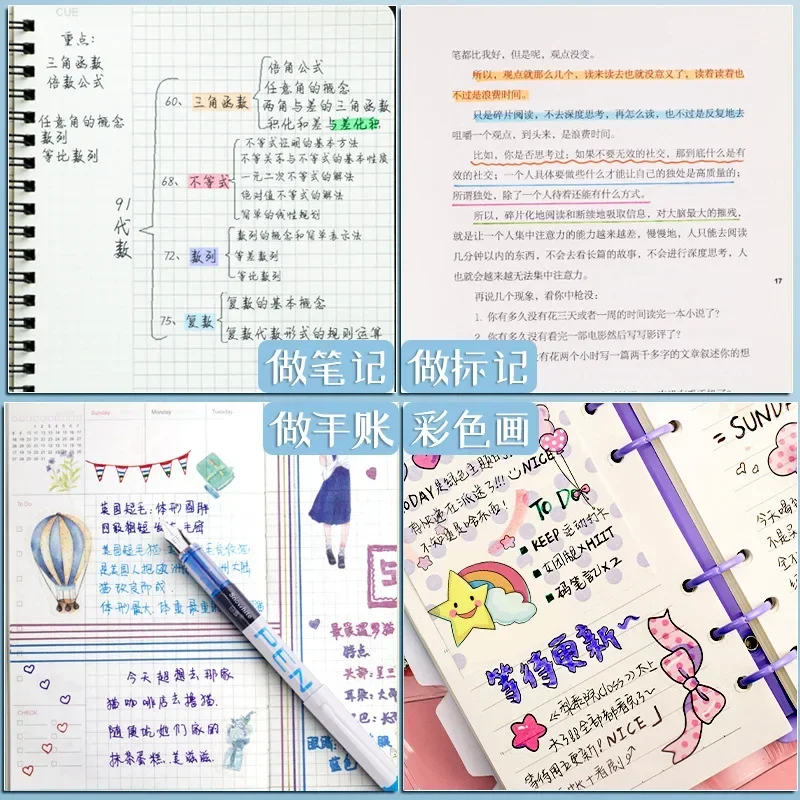 CUE
重点:
三角函数
倍数公式
任意角的概念
数列
等比数列
91
代数
60、三角函数
倍角公式
任意角的概念
两角与差的三角函数
积化和差与差化积
68、不等式
不等式证明的基本方法
不等关系与不等式的基本性质
一元二次不等式的解法
绝对值不等式的解法
简单的线性规划
72、数列
数列的概念和简单表示法
等差数列
等比数列
75、复数
复数的基本概念
复数代数形式的规则运算
做笔记
笔都比我好，但是呢，观点没变。
所以，观点就那么几个，读来读去也就没意义了，读着读着也
不过是浪费时间。
只是碎片阅读，不去深度思考，再怎么读，也不过是反复地去
咀嚼一个观点，到头来，是浪费时间。
比如，你是否思考过：如果不要无效的社交，那到底什么是有
效的社交；一个人具体要做些什么才能让自己的独处是高质量的；
所谓独处，除了一个人待着还能有什么方式。
所以，碎片化地阅读和断续地吸取信息，对大脑最大的摧残，
就是让一个人集中注意力的能力越来越差，慢慢地，人只能去阅读
几分钟以内的东西，不会去看长篇的故事，不会进行深度思考，人
也就会越来越无法集中注意力。
17
再说几个现象，看你中枪没：
1. 你有多久没有花三天或者一周的时间读完一本小说了？
2. 你有多久没有看完一部电影然后写写影评了？
有花两个小时写一篇两千多字的文章叙述你的想
做标记
做手账
Sunday
Monday
Tuesday
To Do
英国短毛：体形圆胖
四肢粗短
是英国人把欧洲 洲大陆
体形最大，体重最重
今天超想去那家
猫咖啡店去撸猫。
随便吃他们家的
抹茶蛋糕，美滋滋。
CHECK
Snowhite
PEN
特点
彩色画
NICE
To Do
KEEP 运动打卡
立团版XHIIT
码笔记X2
等待更新~
NICE」
= SUND
今天喝